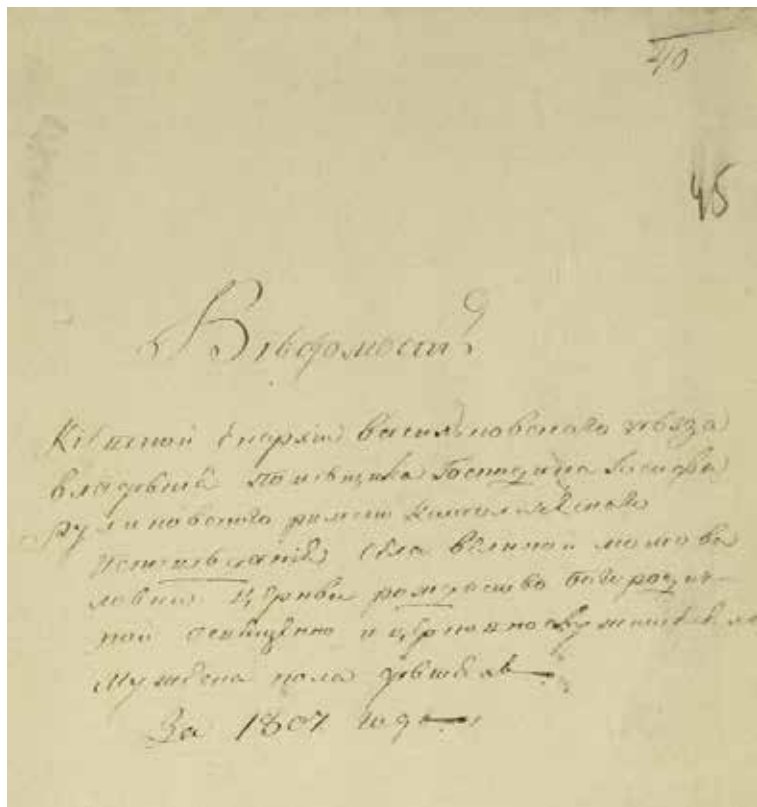 210
45
Вѣдомость
Кіевской Епархіи Васильковского уѣзда
владѣнія помѣщика Господина Іосифа
Руликовского римско
исповѣданія села Великой мотови
ловки церкви рождество богородич-
ной о священно и церковнослужителях
Мужеска пола дѣтях
За 1807 годъ